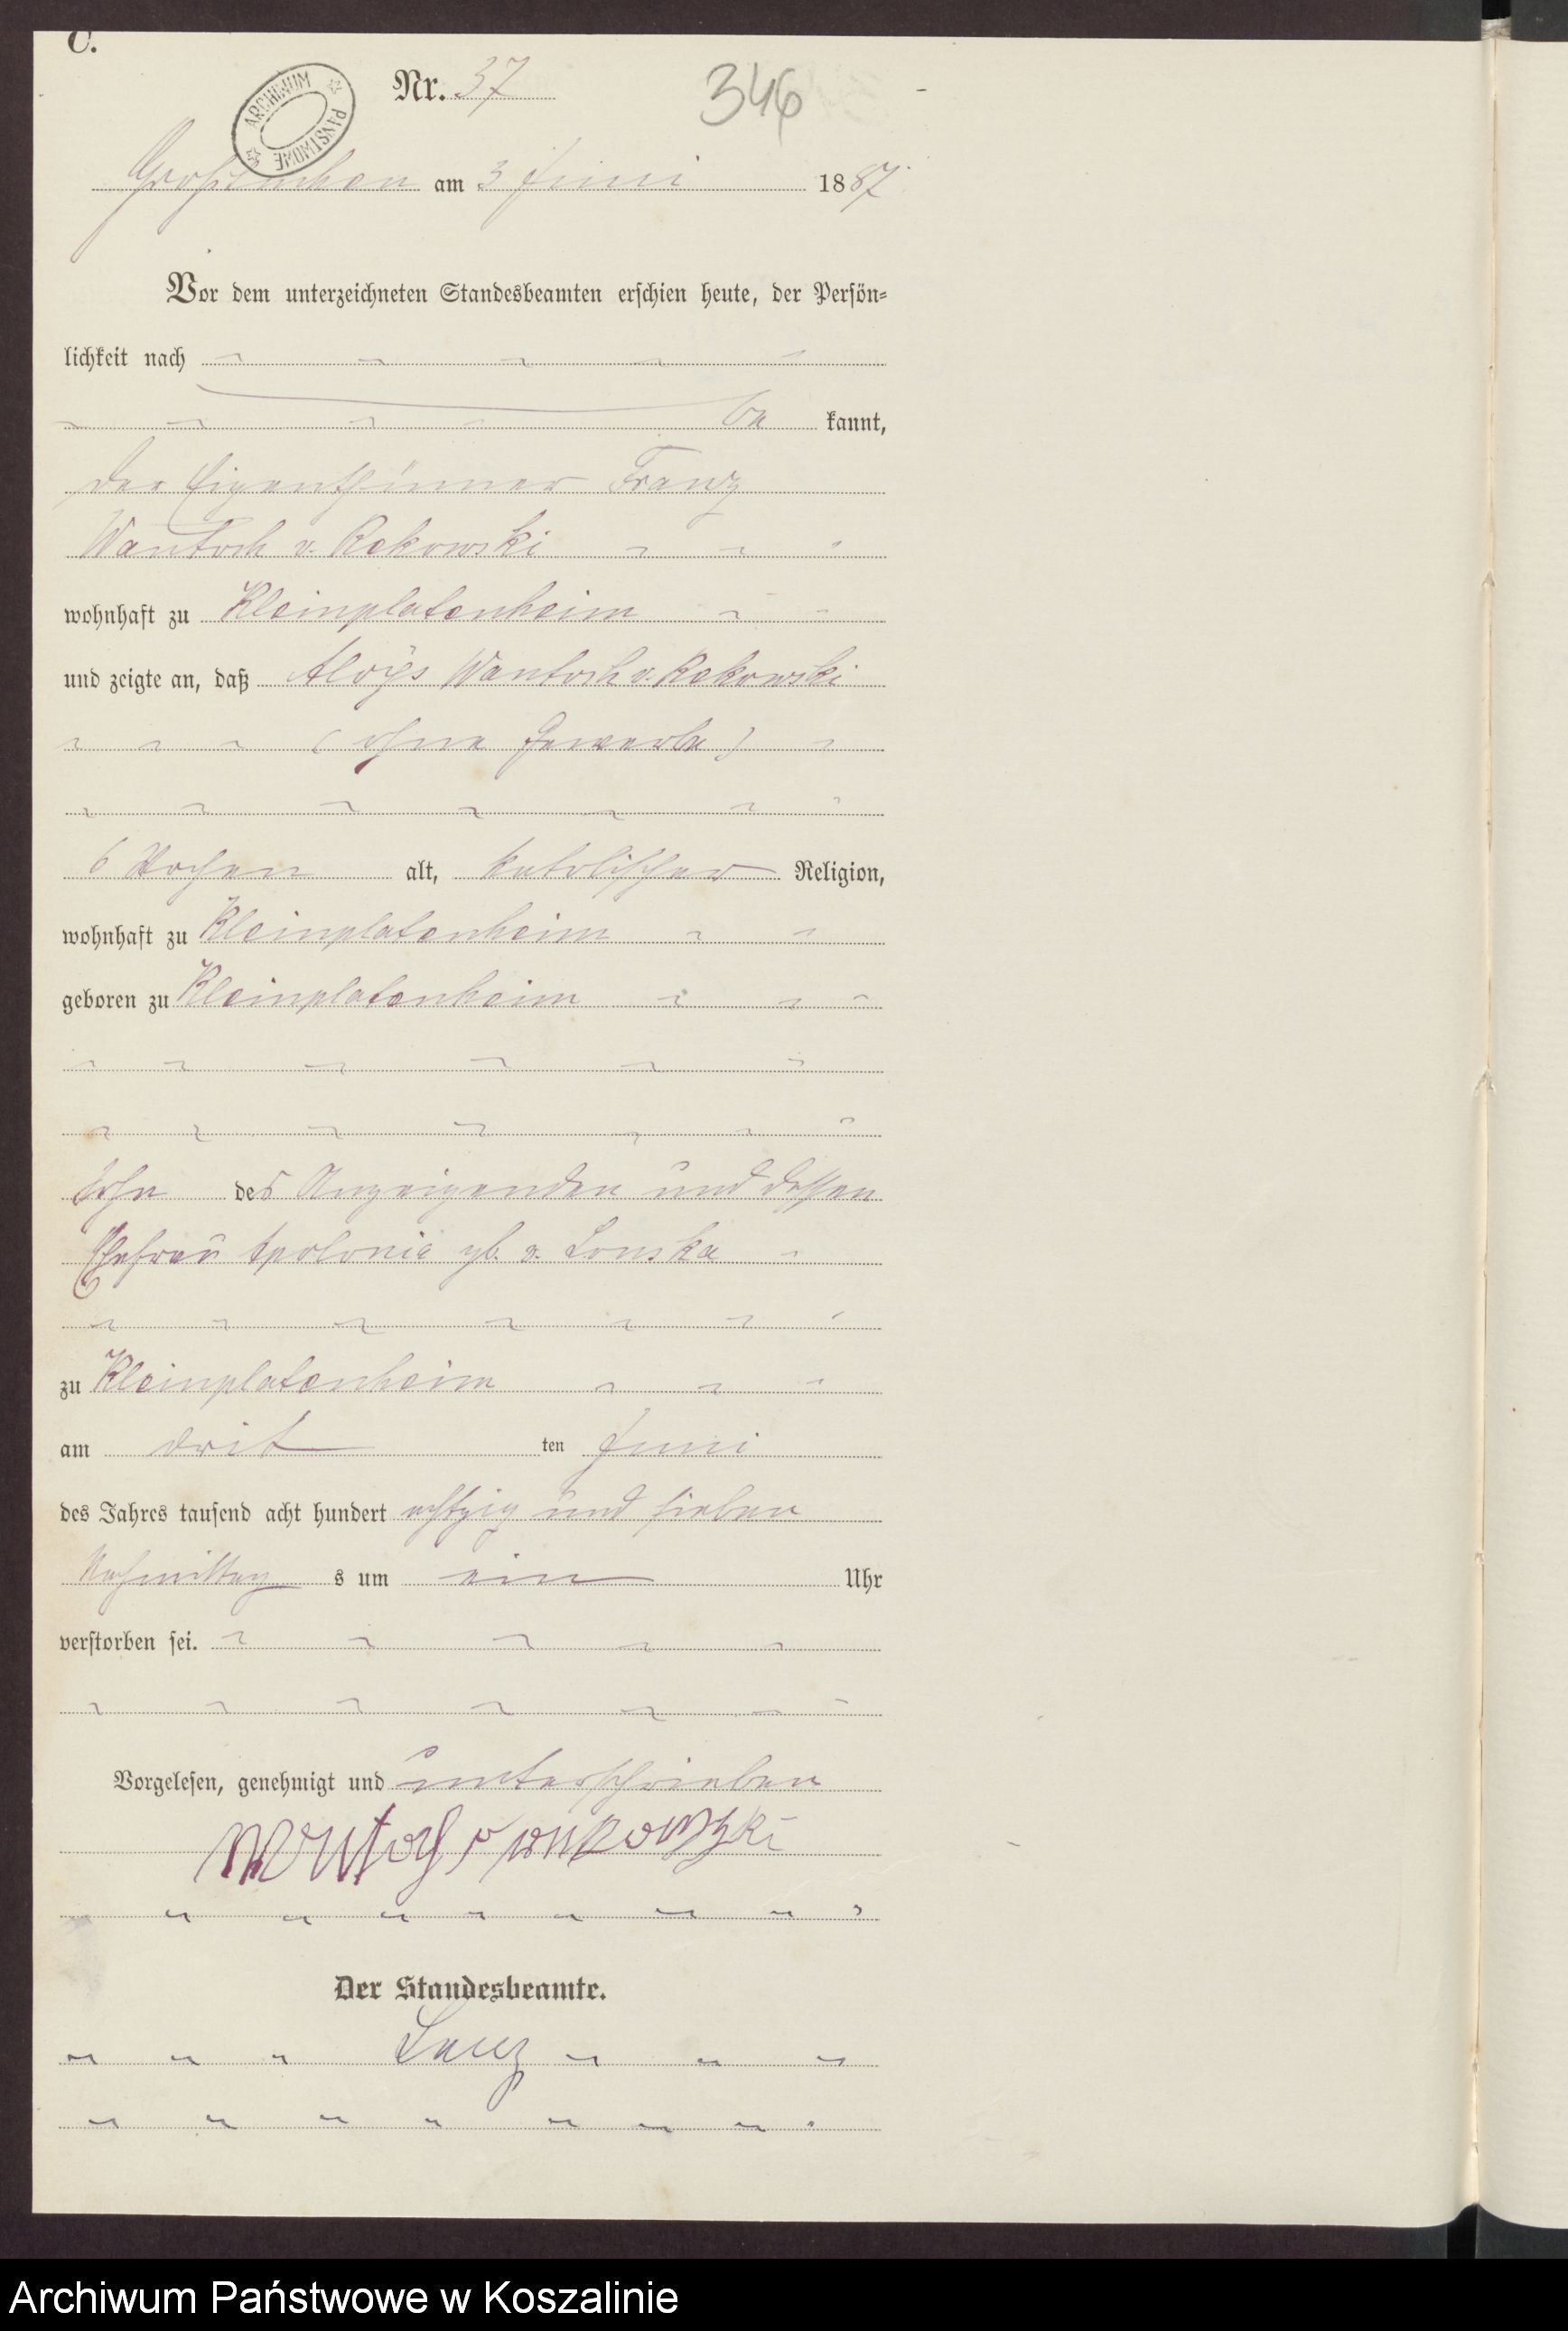 C.
Nr. 37
346
ARCHIWUM PAŃSTWOWE
Großtuchen am 3 Juni 1887
Vor dem unterzeichneten Standesbeamten erschien heute, der Persön-
lichkeit nach
be kannt,
der Eigenthümer Franz
Wantoch v. Rekowski
wohnhaft zu Kleinplatenheim
und zeigte an, daß Aloÿs Wantoch v. Rekowski
(ohne Gewerbe)
6 Wochen alt, katolischer Religion,
wohnhaft zu Kleinplatenheim
geboren zu Kleinplatenheim
Sohn des Anzeigenden und dessen
Ehefrau Apolonie gb. v. Lonska
zu Kleinplatenheim
am drit ten Juni
des Jahres tausend acht hundert achtzig und sieben
Nachmittag s um ein Uhr
verstorben sei.
Vorgelesen, genehmigt und unterschrieben
Der Standesbeamte.
Archiwum Państwowe w Koszalinie